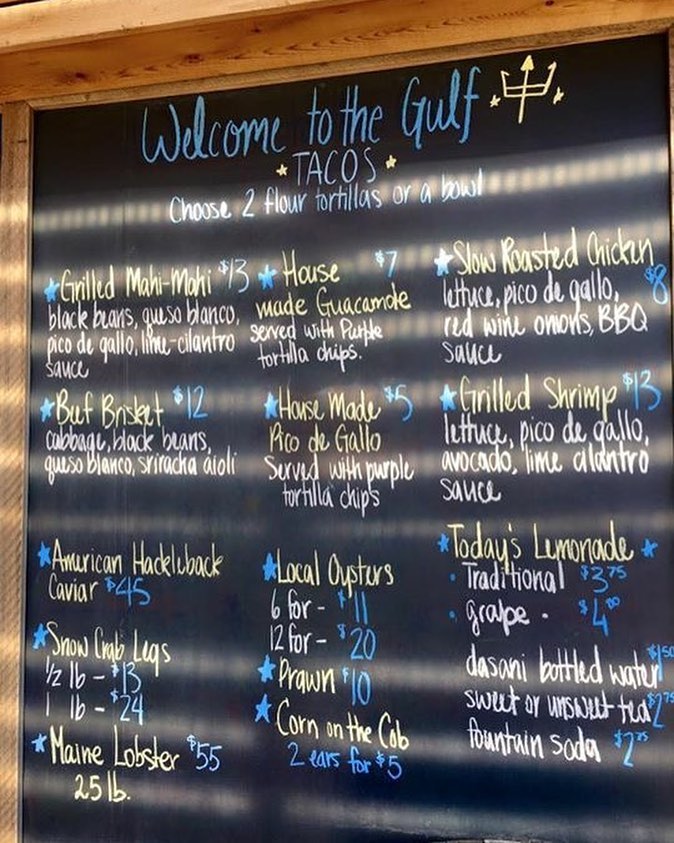 Welcome to the Gulf
TACOS
Choose 2 flour tortillas or a bowl
Grilled Mahi-Mahi $13
black beans, queso blanco,
pico de gallo, lime-cilantro
sauce
Beef Brisket $12
cabbage, black beans,
queso blanco, sriracha aioli
American Hackleback
Caviar $45
Snow Crab Legs
1/2 lb - $13
1 lb - $24
Maine Lobster $55
2.5 lb.
House $7
made Guacamole
served with Purple
tortilla chips.
House Made $5
Pico de Gallo
Served with purple
tortilla chips
Local Oysters
6 for - $11
12 for - $20
Prawn $10
Corn on the Cob
2 ears for $5
Slow Roasted Chicken
lettuce, pico de gallo, $8
red wine onions, BBQ
sauce
Grilled Shrimp $13
lettuce, pico de gallo,
avocado, lime cilantro
sauce
Today's Lemonade
· Traditional $3.75
· grape - $4.00
dasani bottled water $1.50
sweet or unsweet tea $2.75
fountain soda $2.75